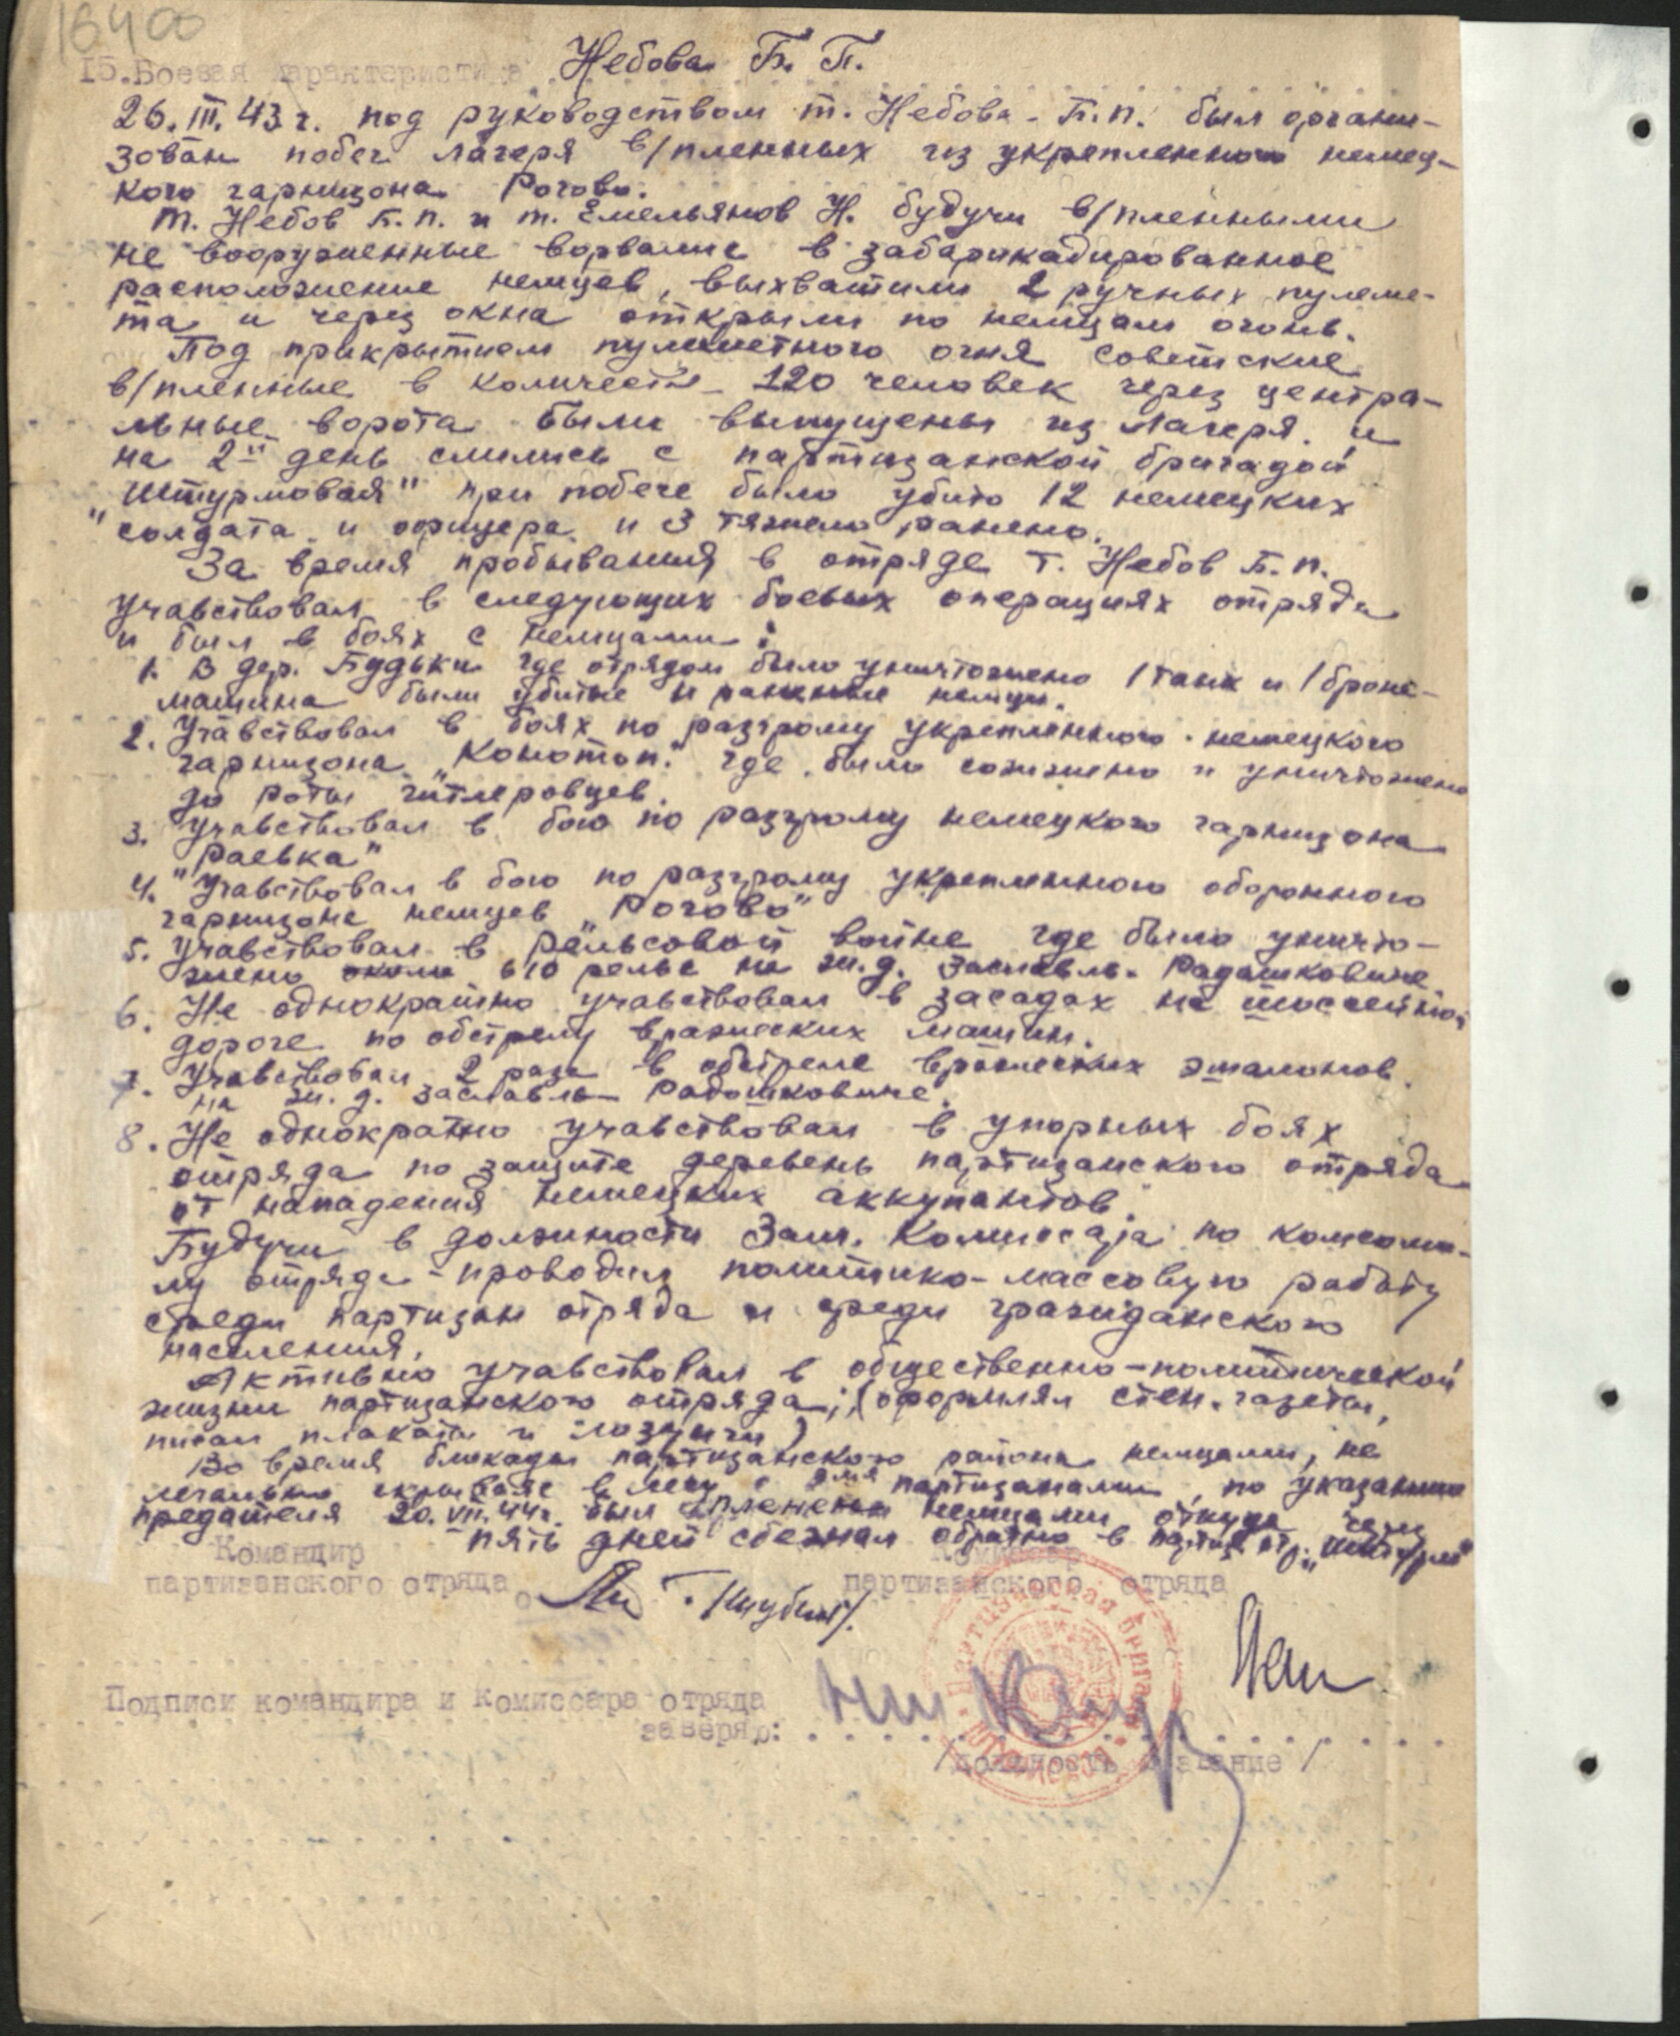 16400
15. Боевая характеристика Небова Б. П.
26.III.43 г. под руководством т. Небова Б.П. был органи-
зован побег лагеря в/пленных из укрепленного немец-
кого гарнизона Рогово.
Т. Небов Б.П. и т. Емельянов Н. будучи в/пленными
не вооруженные ворвались в забарикадированное
расположение немцев, выхватили 2 ручных пулеме-
та и через окна открыли по немцам огонь.
Под прикрытием пулеметного огня советские
в/пленные в количестве 120 человек через центра-
льные ворота были выпущены из лагеря и
на 2й день слились с партизанской бригадой
"Штурмовая" при побеге было убито 12 немецких
солдата и офицера и 3 тяжело ранено.
За время пробывания в отряде т. Небов Б.П.
учавствовал в следующих боевых операциях отряда
и был в боях с немцами:
1. В дер. Будьки где отрядом было уничтожено 1 танк и 1 броне-
машина были убитые и раненые немцы.
2. Учавствовал в боях по разгрому укрепленного немецкого
гарнизона "Конотоп" где было сожжено и уничтожено
до роты гитлеровцев.
3. Учавствовал в бою по разгрому немецкого гарнизона
"Раевка"
4. Учавствовал в бою по разгрому укрепленного оборонного
гарнизона немцев "Рогово"
5. Учавствовал в рельсовой войне где было уничто-
жено около 610 рельс на ж.д. Заславль-Радашковиче
6. Не однократно учавствовал в засадах на шоссейной
дороге по обстрелу вражеских машин.
7. Учавствовал 2 раза в обстреле вражеских эшалонов
на ж.д. Заславль-Радошковиче.
8. Не однократно учавствовал в упорных боях
отряда по защите деревень партизанского отряда
от нападения немецких аккупантов.
Будучи в должности Зам. Комиссара по комсомо-
лу отряда - проводил политико-массовую работу
среди партизан отряда и среди гражданского
населения.
Активно учавствовал в общественно-политической
жизни партизанского отряда; (оформлял стен. газеты,
писал плакаты и лозунги)
Во время блокады партизанского района немцами, не
легально скрываясь в лесу с партизанами, по указанию
предателя 20.VII.44г. был пленен немцами откуда через
пять дней сбежал обратно в партиз. отр. "Штурм"
Командир
партизанского отряда
Комиссар
партизанского отряда
Партизанская бригада
Подписи командира и Комиссара отряда
заверяю:
/должность звание/